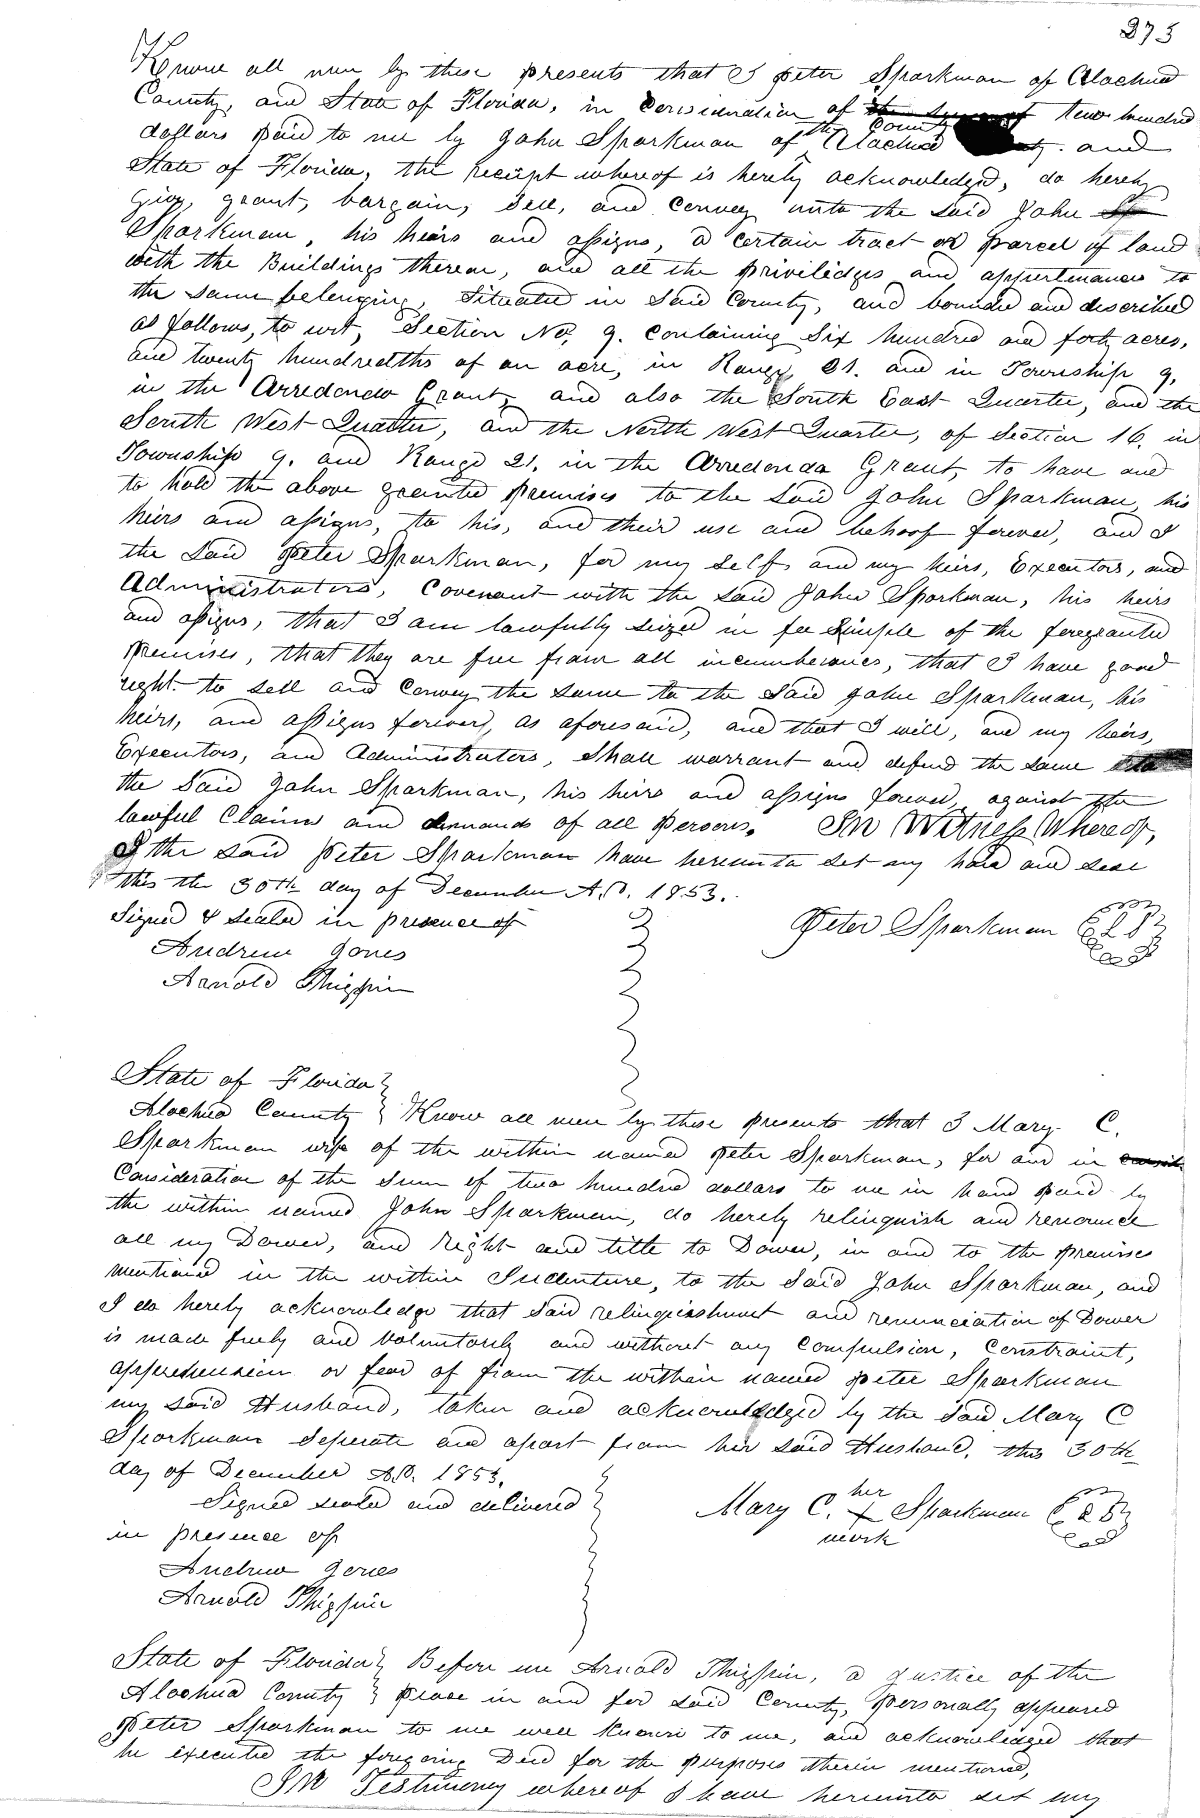 273
Know all men by these presents that I Peter Sparkman of Alachua
County, and State of Florida, in consideration of the sum of two hundred
dollars paid to me by John Sparkman of the County Alachua and
State of Florida, the receipt whereof is hereby acknowledged, do hereby
give, grant, bargain, sell, and convey unto the said John Sp
Sparkman, his heirs and assigns, a certain tract or parcel of land
with the Buildings thereon, and all the priviledges and appertenances to
the same belonging, Situated in Said County, and bounded and described
as follows, to wit, Section No, 9. containing Six hundred and forty acres,
and twenty hundredths of an acre, in Range 21. and in Township 9,
in the Arredondo Grant, and also the South East Quarter, and the
South West Quarter, and the North West Quarter, of Section 16. in
Township 9. and Range 21. in the Arredondo Grant, to have and
to hold the above granted premises to the said John Sparkman, his
heirs and assigns, to his, and their use and behoof forever, and I
the said Peter Sparkman, for my self, and my heirs, Executors, and
Administrators, Covenant with the said John Sparkman, his heirs
and assigns, that I am lawfully seized in fee Simple of the foregranted
premises, that they are free from all incumberances, that I have good
right to sell and convey the same to the said John Sparkman, his
heirs, and assigns forever, as aforesaid, and that I will, and my heirs,
Executors, and Administrators, Shall warrant and defend the same
the said John Sparkman, his heirs and assigns forever, against the
lawful Claims and demands of all persons. In Witness Whereof,
I the said Peter Sparkman have hereunto set my hand and seal
this the 30th day of December A.D. 1853.
Signed & sealed in presence of
Peter Sparkman
Andrew Jones
Arnold Thigpin
State of Florida
Alachua County Know all men by these presents that I Mary C.
Sparkman wife of the within named Peter Sparkman, for and in
Consideration of the Sum of two hundred dollars to me in hand paid by
the within named John Sparkman, do hereby relinquish and renounce
all my Dower, and Right and title to Dower, in and to the premises
mentioned in the within Indenture, to the said John Sparkman, and
I do hereby acknowledge that said relinquishment and renunciation of Dower
is made freely and voluntarily and without any compulsion, Constraint,
apprehension or fear of from the within named Peter Sparkman
my said Husband, taken and acknowledged by the said Mary C
Sparkman Seperate and apart from her said Husband, this 30th
day of December A.D. 1853.
Signed sealed and delivered
in presence of
her
Mary C. X Sparkman
mark
Andrew Jones
Arnold Thigpin
State of Florida Before me Arnold Thigpin, a Justice of the
Alachua County peace in and for said County, personally appeared
Peter Sparkman to me well known to me, and acknowledged that
he executed the foregoing Deed for the purposes therein mentioned,
In Testimony whereof I have hereunto set my